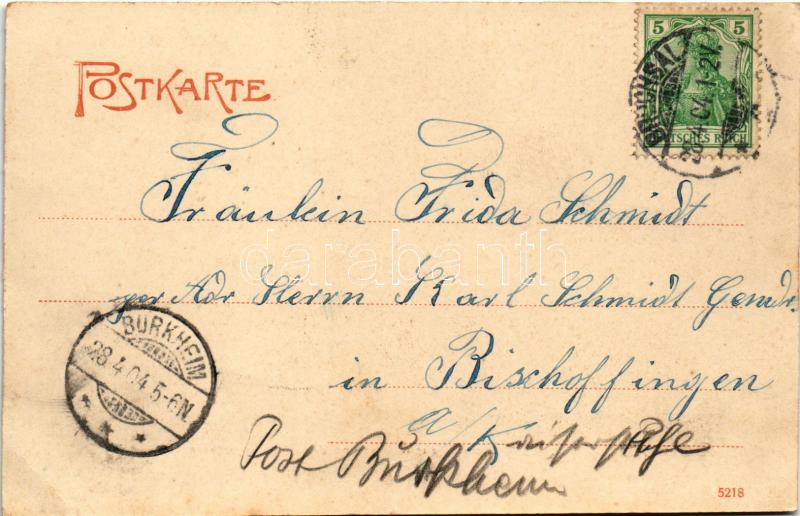 POSTKARTE
5 5
DEUTSCHES REICH
BRUCHSAL
28 4 04 1-2N.
Fräulein Frida Schmidt
per Adr Herrn Karl Schmidt Gemdr.
in Bischoffingen
a/Kaiserstuhl
Post Burkheim
BURKHEIM
28 4 04 5-6N
5218
darabanth